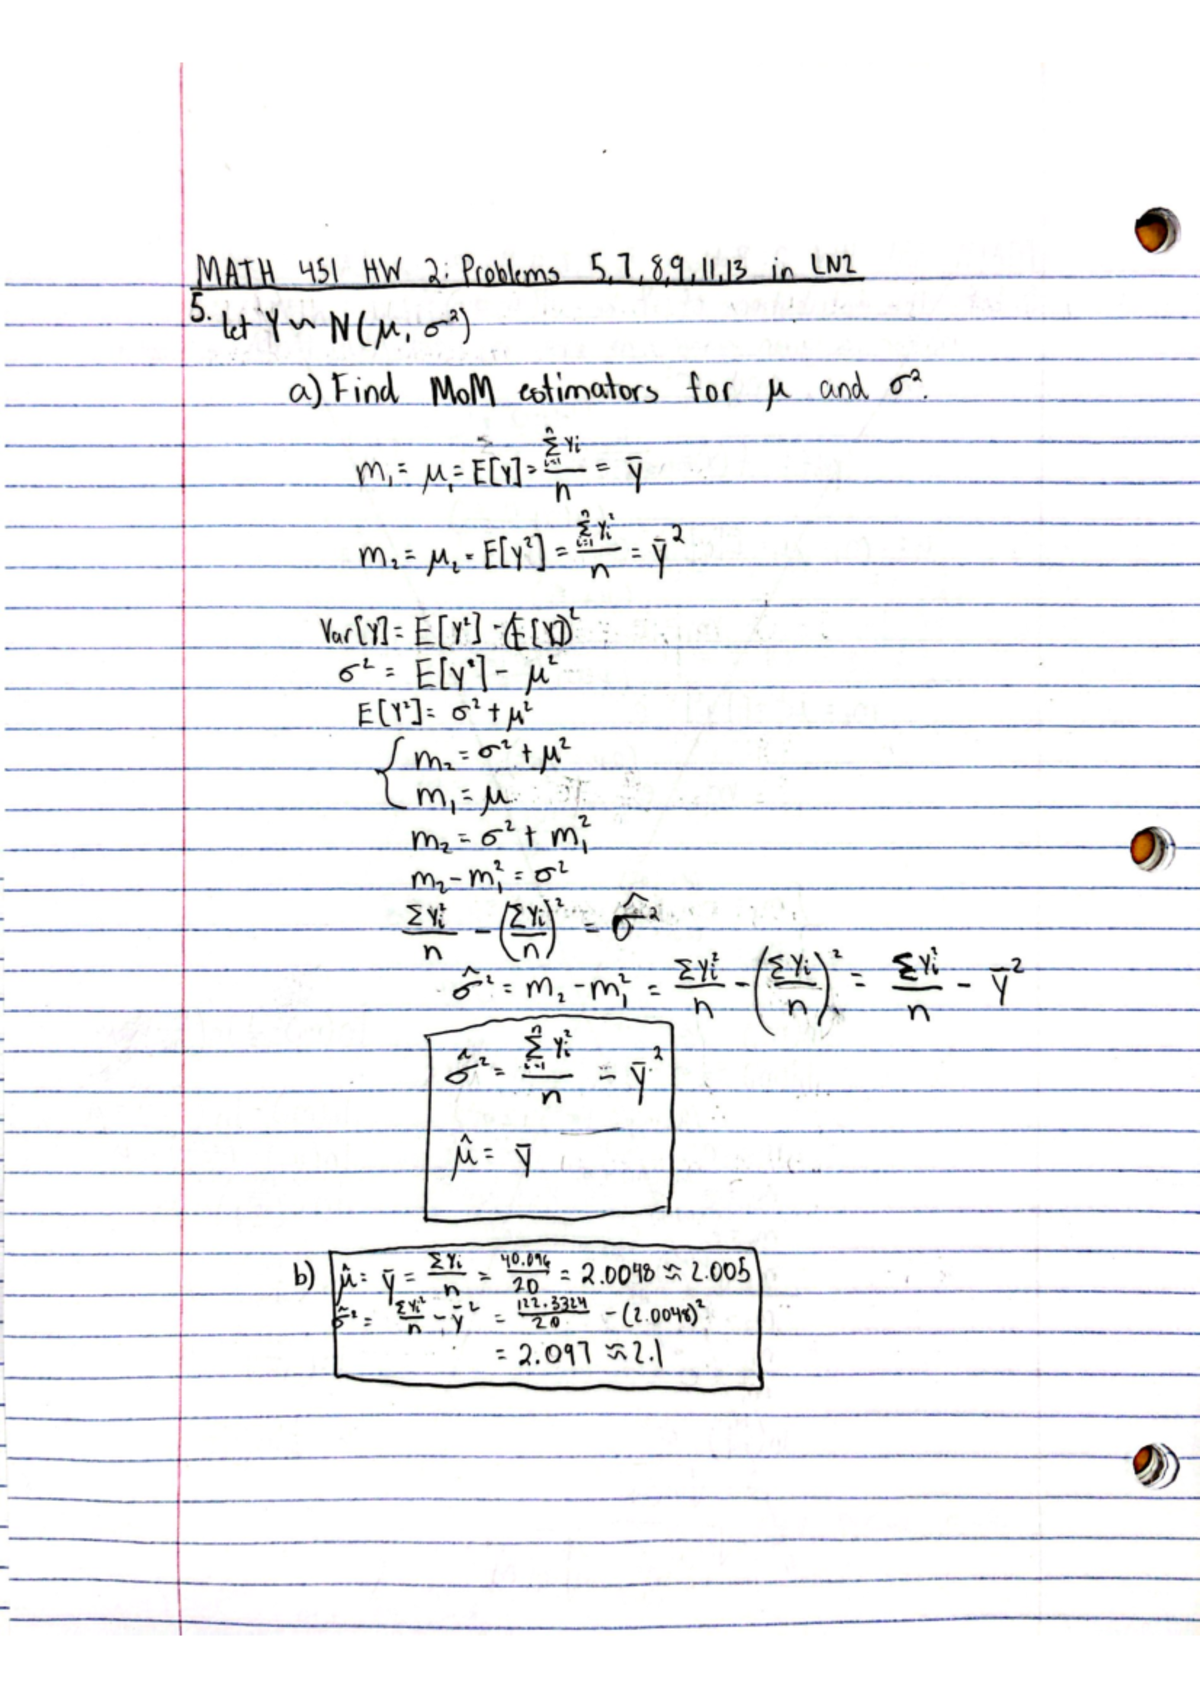 MATH 451 HW 2: Problems 5,7,8,9,11,13 in LN2
5. let Y ~ N(μ, σ²)
a) Find MoM estimators for μ and σ².
m₁ = μ₁ = E[Y] = (Σᵢ₌₁ⁿ Yᵢ)/n = Ȳ
m₂ = μ₂ = E[Y²] = (Σᵢ₌₁ⁿ Yᵢ²)/n = Ȳ²
Var[Y] = E[Y²] - (E[Y])²
σ² = E[Y²] - μ²
E[Y²] = σ² + μ²
{ m₂ = σ² + μ²
m₁ = μ
m₂ = σ² + m₁²
m₂ - m₁² = σ²
ΣYᵢ²/n - (ΣYᵢ/n)² = σ̂²
σ̂² = m₂ - m₁² = ΣYᵢ²/n - (ΣYᵢ/n)² = ΣYᵢ²/n - Ȳ²
σ̂² = (Σᵢ₌₁ⁿ Yᵢ²)/n - Ȳ²
μ̂ = Ȳ
b) μ̂ = Ȳ = ΣYᵢ/n = 40.096/20 = 2.0048 ≈ 2.005
σ̂² = ΣYᵢ²/n - Ȳ² = 122.3324/20 - (2.0048)²
= 2.097 ≈ 2.1